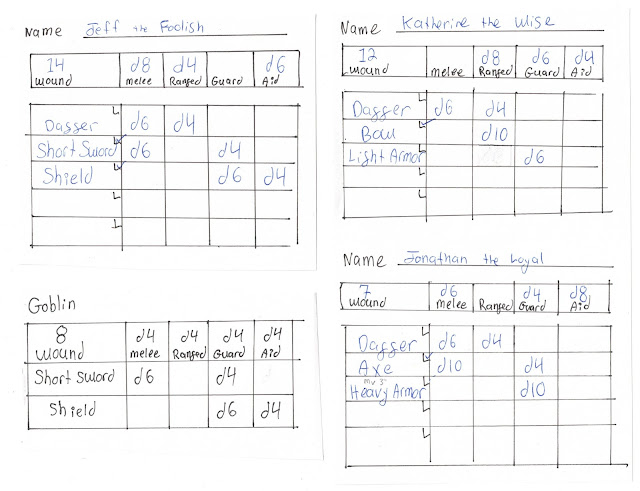 Name Jeff the Foolish
14 d8 d4 d6
wound melee Ranged Guard Aid
Dagger d6 d4
Short Sword d6 d4
Shield d6 d4
Goblin
8 d4 d4 d4 d4
wound melee Ranged Guard Aid
Short Sword d6 d4
Shield d6 d4
Name Katherine the Wise
12 d8 d6 d4
wound melee Ranged Guard Aid
Dagger d6 d4
Bow d10
Light Armor d6
Name Jonathan the Loyal
7 d6 d4 d8
wound melee Ranged Guard Aid
Dagger d6 d4
Axe d10 d4
mv 3"
Heavy Armor d10